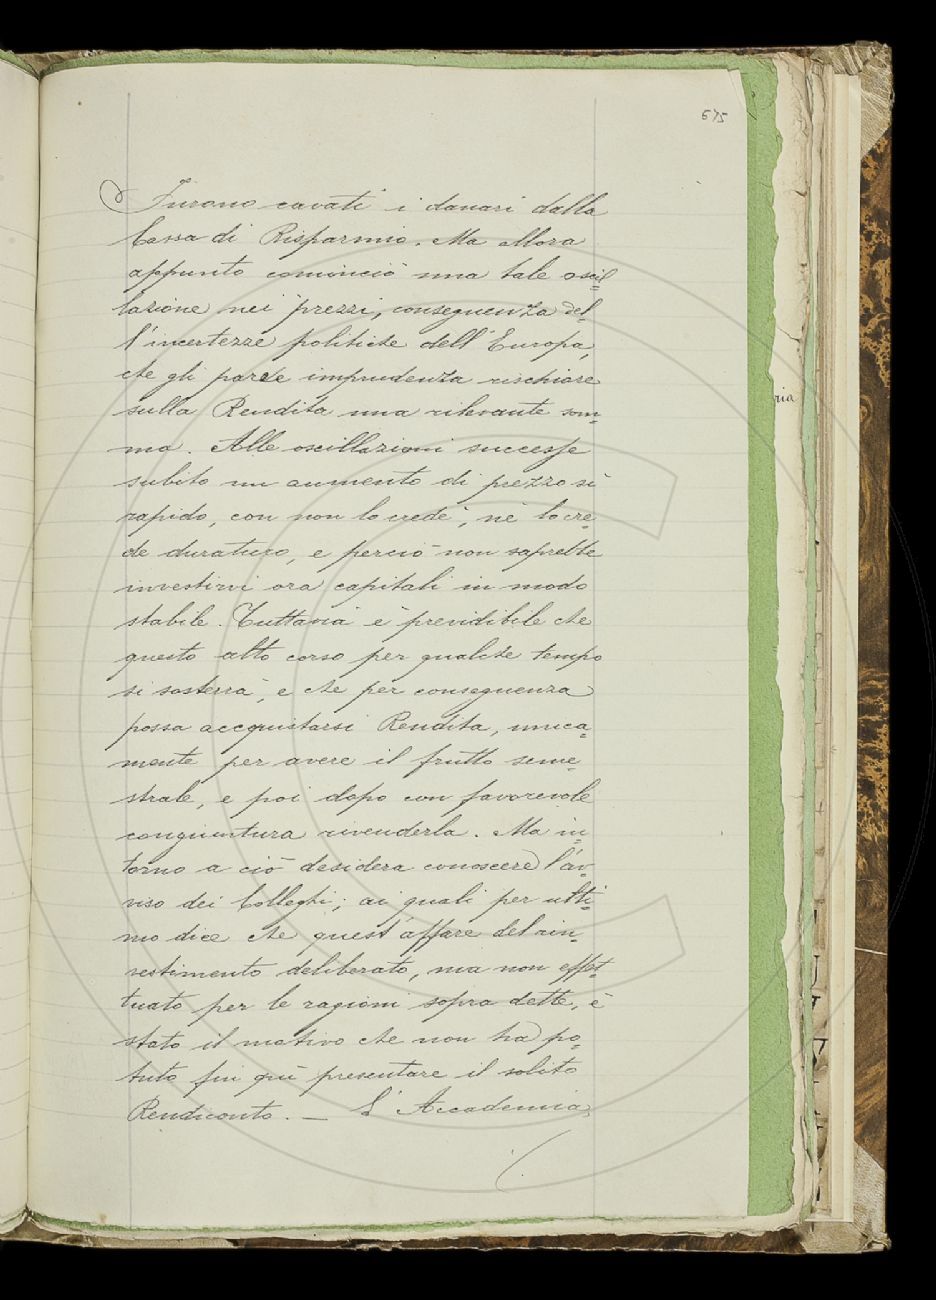 675
Furono cavati i danari dalla
Cassa di Risparmio. Ma allora
appunto cominciò una tale oscil=
lazione nei prezzi, conseguenza del=
l'incertezze politiche dell'Europa,
che gli parve imprudenza rischiare
sulla Rendita una rilevante som=
ma. Alle oscillazioni successe
subito un aumento di prezzo sì
rapido, con non lo crede, nè lo cre=
de duraturo, e perciò non saprebbe
investirvi ora capitali in modo
stabile. Tuttavia è previdibile che
questo alto corso per qualche tempo
si sosterrà, e che per conseguenza
possa accquistarsi Rendita, unica=
mente per avere il frutto seme=
strale, e poi dopo con favorevole
congiuntura rivenderla. Ma in=
torno a ciò desidera conoscere l'av=
viso dei Colleghi; ai quali per ulti=
mo dice che quest'affare del rin=
vestimento deliberato, ma non effet=
tuato per le ragioni sopra dette, è
stato il motivo che non ha po=
tuto fin qui presentare il solito
Rendiconto. — L'Accademia
ria